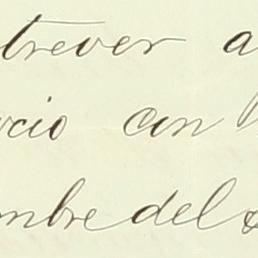 trever a
ocio con
mbre del